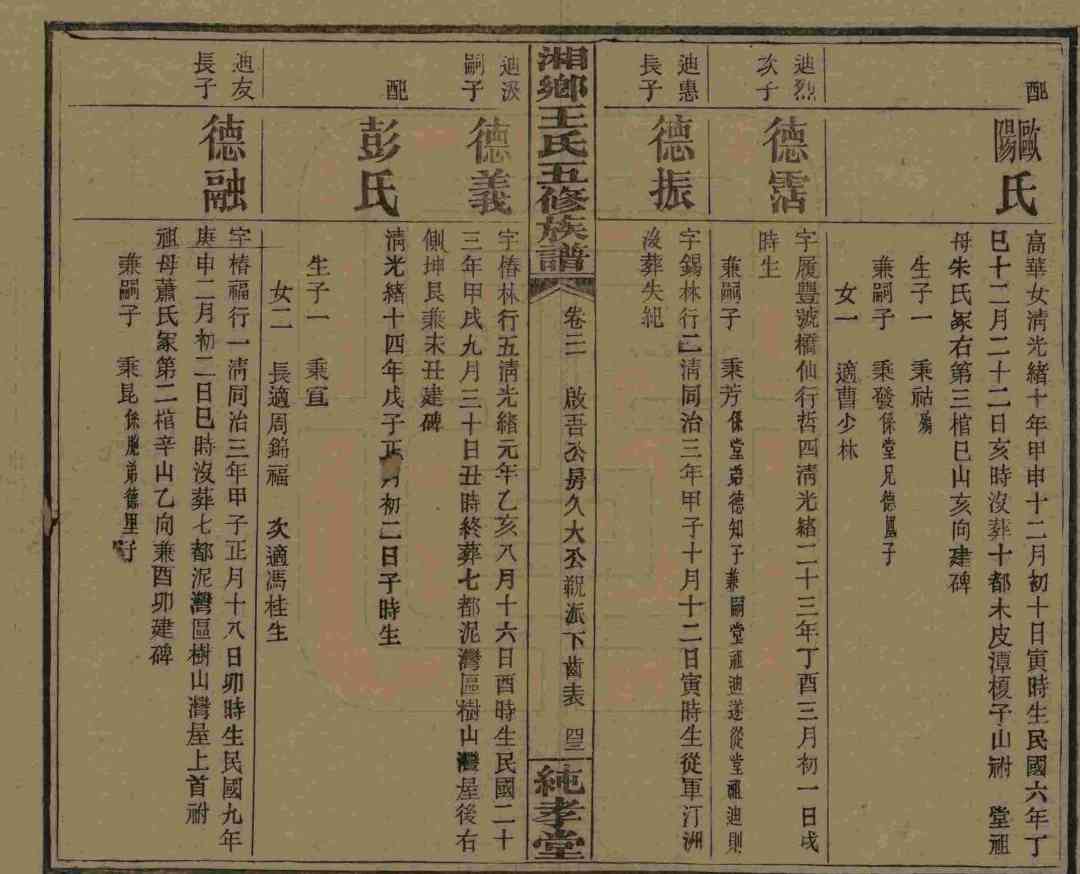 配
歐陽氏
高華女淸光緒十年甲申十二月初十日寅時生民國六年丁
巳十二月二十二日亥時沒葬十都木皮潭榎子山祔 堂祖
母朱氏冢右第三棺巳山亥向建碑
生子一 秉祜殤
兼嗣子 秉發係堂兄德鳳子
女一 適曹少林
迪烈
次子
德霑
字履豐號橋仙行哲四淸光緒二十三年丁酉三月初一日戌
時生
兼嗣子 秉芳係堂弟德知子兼嗣堂祖迪遂從堂祖迪則
迪惠
長子
德振
字錫林行二淸同治三年甲子十月十二日寅時生從軍汀洲
沒葬失紀
湘鄉王氏五修族譜
卷三 啟吾公房久大公𧠠派下齒表
純孝堂
迪汲
嗣子
德義
字椿林行五淸光緒元年乙亥八月十六日酉時生民國二十
三年甲戌九月三十日丑時終葬七都泥灣區樹山灣屋後右
側坤艮兼未丑建碑
配
彭氏
淸光緒十四年戊子正月初二日子時生
生子一 秉宣
女二 長適周錦福 次適馮桂生
迪友
長子
德融
字椿福行一淸同治三年甲子正月十八日卯時生民國九年
庚申二月初二日巳時沒葬七都泥灣區樹山灣屋上首祔
祖母蕭氏冢第二棺辛山乙向兼酉卯建碑
兼嗣子 秉昆係胞弟德里子